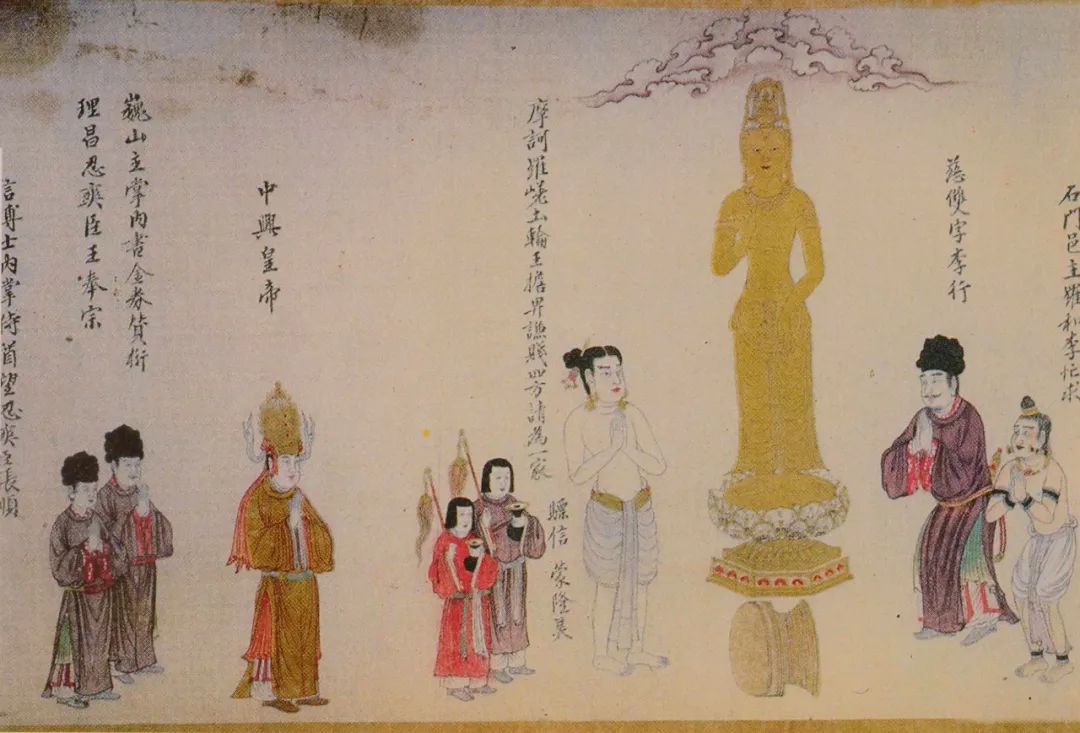 石門邑主羅和李忙求
慈雙字李行
摩訶羅嵯土輪王擔畀謙賤四方請為一家
驃信 蒙隆昊
中興皇帝
巍山主掌內書金券贊衛
理昌忍爽臣王奉宗
信博士內掌侍酋望忍爽臣張順